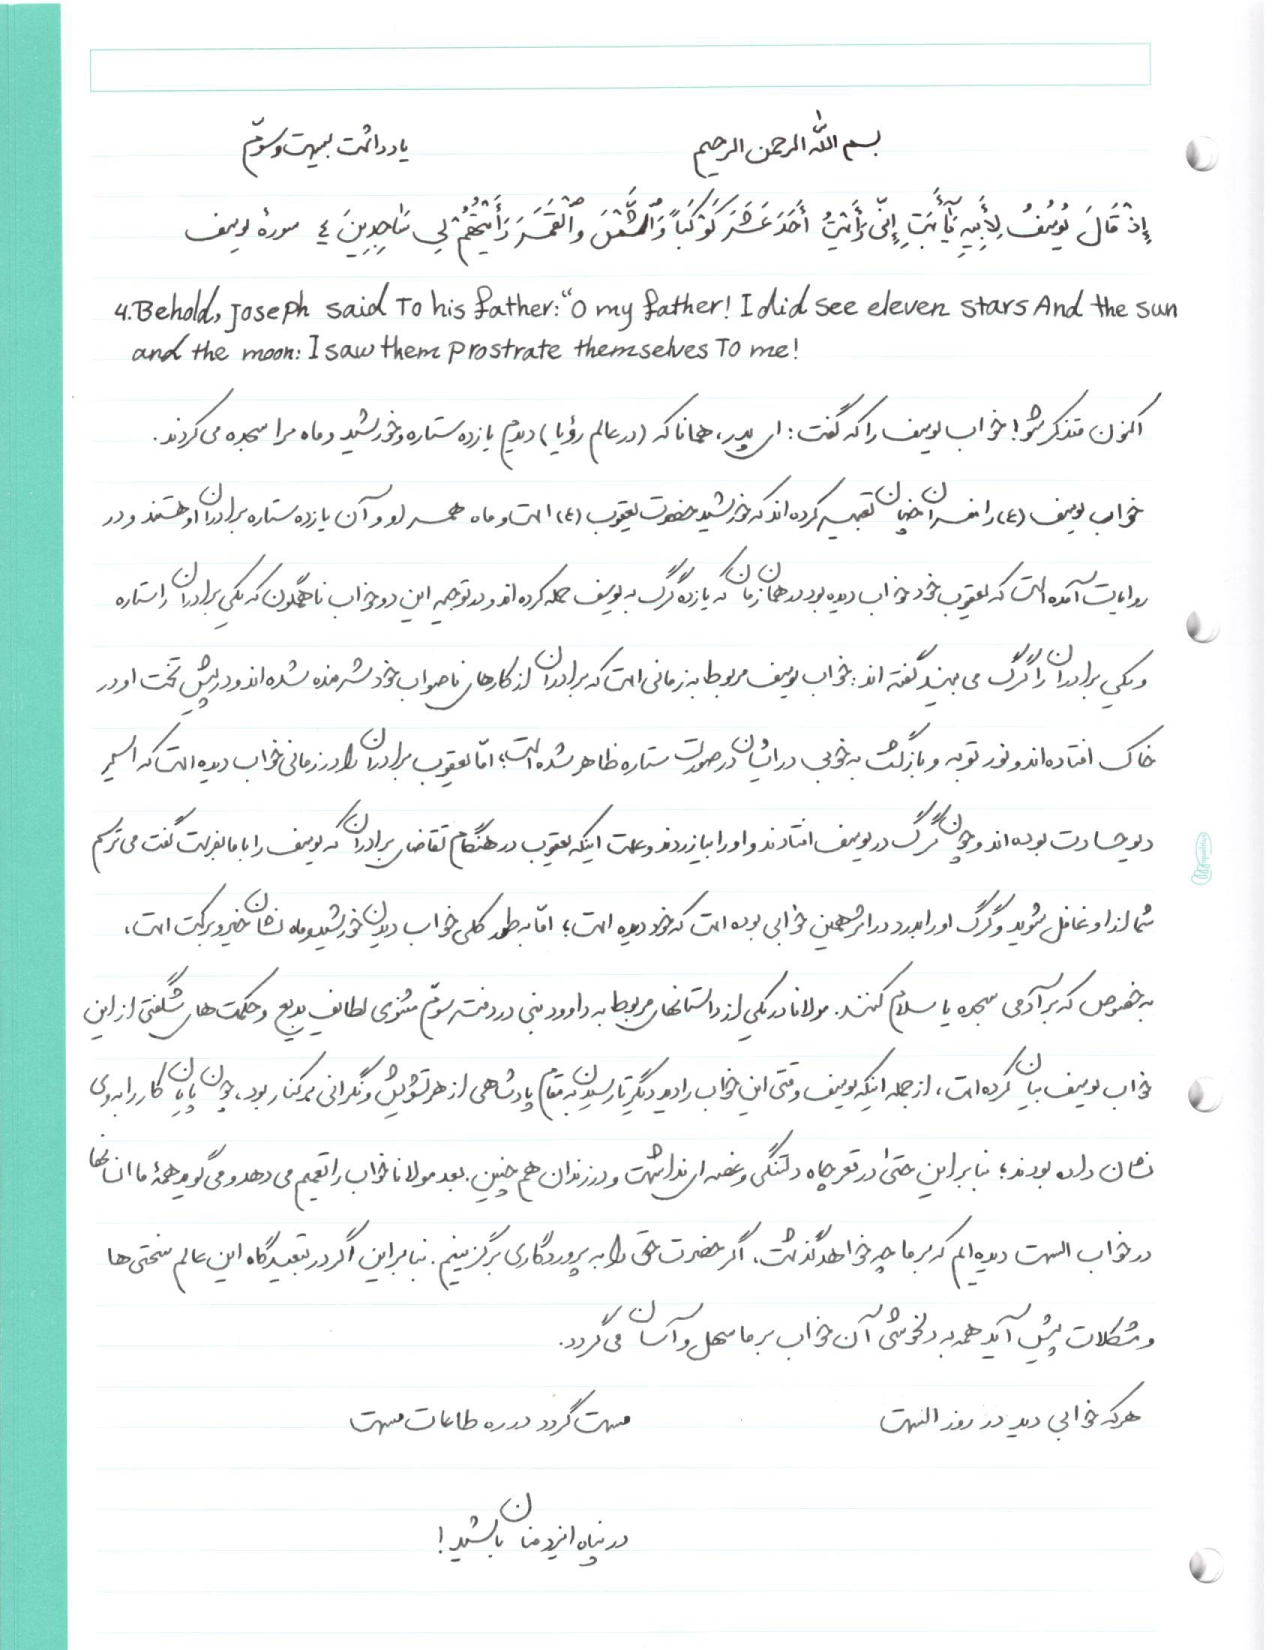 بسم الله الرحمن الرحیم یادداشت بیست و سوّم
إِذْ قَالَ يُوسُفُ لِأَبِيهِ يَٰٓأَبَتِ إِنِّي رَأَيْتُ أَحَدَ عَشَرَ كَوْكَبًا وَالشَّمْسَ وَالْقَمَرَ رَأَيْتُهُمْ لِي سَاجِدِينَ ٤ سورهٔ یوسف
4. Behold, Joseph said To his father: "O my father! I did see eleven stars And the sun
and the moon: I saw them prostrate themselves To me!
اکنون متذکر شو! خواب یوسف را که گفت: ای پدر، همانا که (در عالم رؤیا) دیدم یازده ستاره و خورشید و ماه مرا سجده می‌کردند.
خواب یوسف (ع) را مفسران چنان تعبیر کرده اند که خورشید حضرت یعقوب (ع) است و ماه همسر او و آن یازده ستاره برادران او هستند و در
روایات آمده است که یعقوب خود خواب دیده بود در همان زمان که یازده گرگ به یوسف حمله کرده اند و در توجیه این دو خواب ناهمگون که یکی برادران را ستاره
و یکی برادران را گرگ می بیند گفته اند: خواب یوسف مربوط به زمانی است که برادران از کارهای ناصواب خود شرمنده شده اند و در پیش تخت او در
خاک افتاده اند و نور توبه و بازگشت به خوبی در ایشان در صورت ستاره ظاهر شده است؛ امّا یعقوب برادران را در زمانی خواب دیده است که اسیر
دیو حسادت بوده اند و چون گرگ در یوسف افتادند و او را بیازردند و علت اینکه یعقوب در هنگام تقاضای برادران که یوسف را با ما بفرست گفت می ترسم
شما از او غافل شوید و گرگ او را بدرد در اثر همین خوابی بوده است که خود دیده است؛ امّا به طور کلی خواب دیدن خورشید و ماه نشان خیر و برکت است،
به خصوص که بر آدمی سجده یا سلام کنند. مولانا در یکی از داستانهای مربوط به داوود نبی در دفتر سوّم مثنوی لطایف بدیع و حکمت های شگفتی از این
خواب یوسف بیان کرده است، از جمله اینکه یوسف وقتی این خواب را دید دیگر تا رسیدن به مقام پادشاهی از هر تشویش و نگرانی برکنار بود، چون پایان کار را به وی
نشان داده بودند؛ بنابراین حتی در قعر چاه دلتنگی و غصه ای نداشت و در زندان هم چنین. بعد مولانا خواب را تعمیم می دهد و می گوید همهٔ ما انسانها
در خواب الست دیده ایم که بر ما چه خواهد گذشت، اگر حضرت حق را به پروردگاری برگزینیم. بنابراین اگر در تبعیدگاه این عالم سختی ها
و مشکلات پیش آید همه به دلخوشی آن خواب بر ما سهل و آسان می گردد.
هر که خوابی دید در روز الست مست گردد در ره طاعات مست
در پناه ایزد منان باشید!